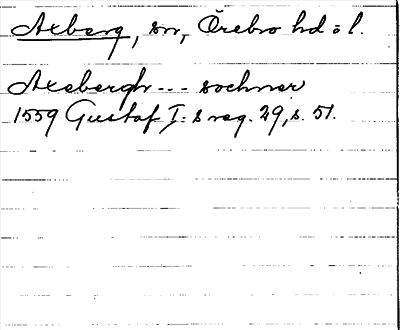 Axberg, sn, Örebro hd o l.
Axebergh --- sochner
1559 Gustaf I:s reg. 29, s. 51.